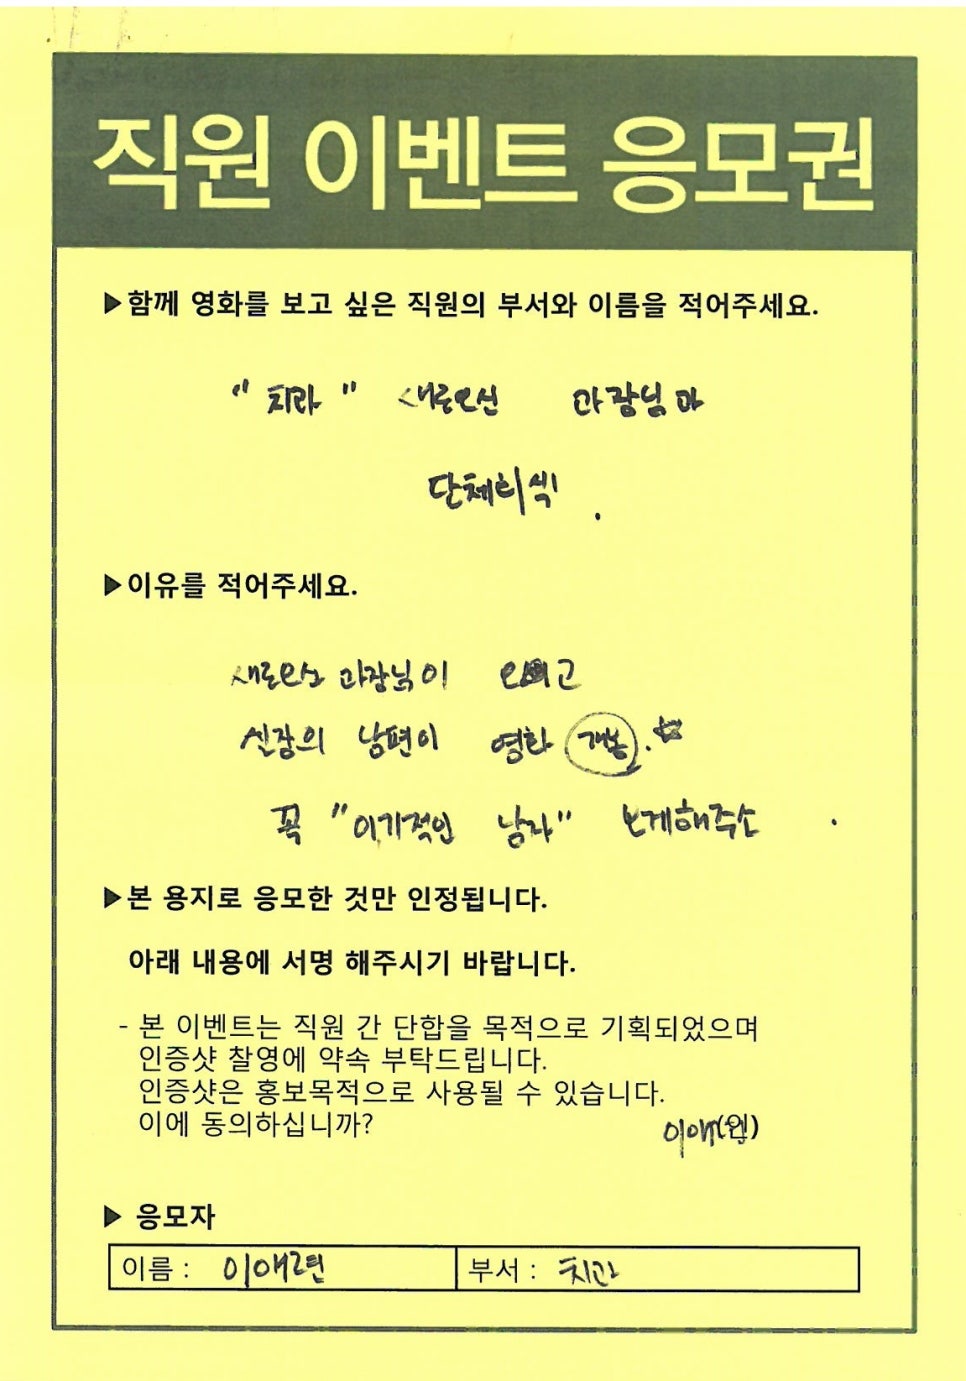 직원 이벤트 응모권
▶함께 영화를 보고 싶은 직원의 부서와 이름을 적어주세요.
"치과" 새로오신 과장님과
단체회식.
▶이유를 적어주세요.
새로오신 과장님이 오시고
실장의 남편이 영화 개봉.☆
꼭 "이기적인 남자" 보게해주소.
▶본 용지로 응모한 것만 인정됩니다.
아래 내용에 서명 해주시기 바랍니다.
- 본 이벤트는 직원 간 단합을 목적으로 기획되었으며
인증샷 촬영에 약속 부탁드립니다.
인증샷은 홍보목적으로 사용될 수 있습니다.
이에 동의하십니까?
이애(인)
▶ 응모자
이름 : 이애련 부서 : 치과